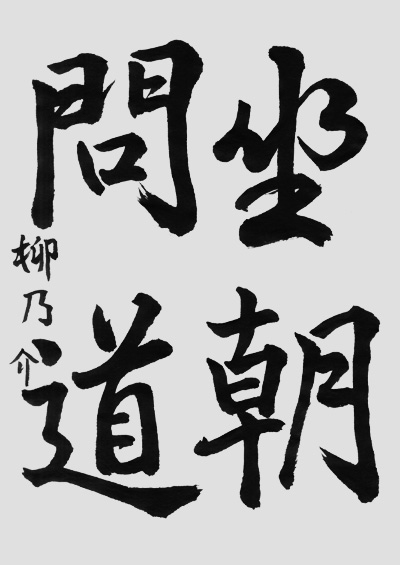 坐朝
問道
柳乃介